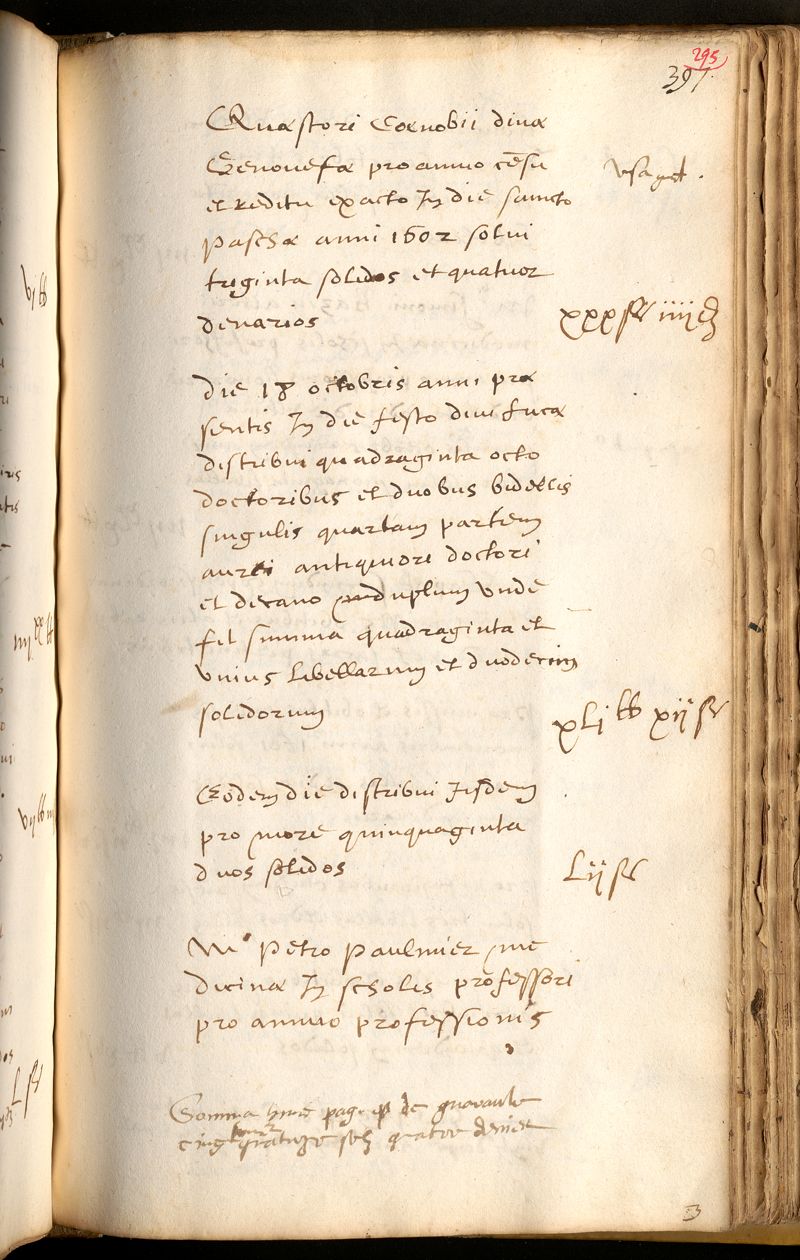 295
397.
Quæstori Cœnobii divæ
Genovefæ pro annuo cēsu
et reditu exacto In die sancto
paschæ anni 1602 solvi
triginta solidos et quatuor
denarios
xxx s iiij d
die 18 octobris anni præ
sentis In die festo divi Lucæ
distribui quadraginta octo
doctoribus et duobus bidellis
singulis quartam partem
aurei antiquiori doctori
et decano duplum unde
fit summa quadraginta et
unius libellarum et duodecim
solidorum
xLj lb xij s
Eodem die distribui Iisdem
pro more quinquaginta
duos solidos
Lij s
Mo Petro Paulmier me
dicinæ In scholis professori
pro annuo professionis
Somma pag. de quarante
cinq quatorze solz quatre denier